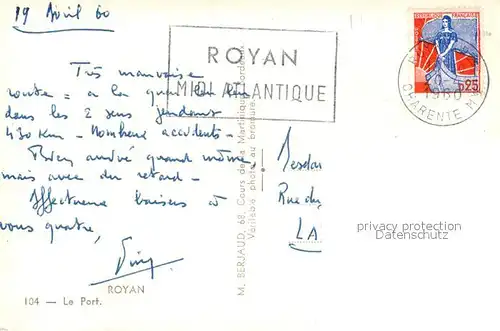 19 Avril 60
ROYAN
MIDI ATLANTIQUE
RÉPUBLIQUE FRANÇAISE
0,25
1960
CHARENTE M
Très mauvaise
route = a la
dans les 2 sens pendant
430 Km - Nombreux accidents -
Bien arrivé quand même,
mais avec du retard -
Affectueux baisers à
vous quatre,
Rue du
LA
privacy protection
Datenschutz
M. BERJAUD, 68, Cours de la Martinique, Bordeaux
Véritable photo au bromure
ROYAN
104 — Le Port.